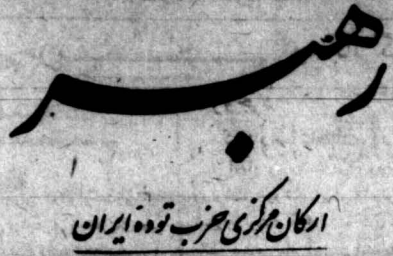 رهبر
ارگان مرکزی حزب تودهٔ ایران